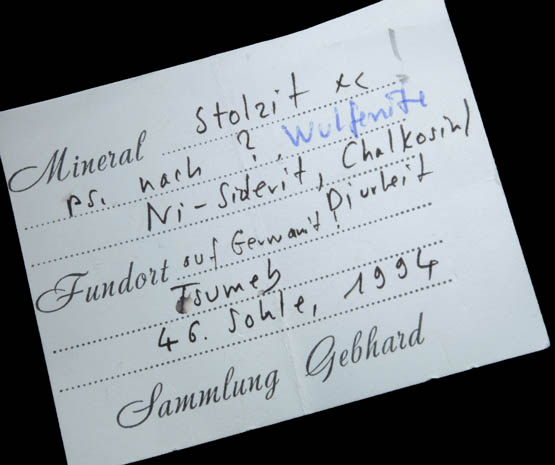 Mineral Stolzit xx
ps. nach ?, Wulfenite
Ni-Siderit, Chalkosin/
Djurleit
Fundort auf Germanit!
Tsumeb
46. Sohle, 1994
Sammlung Gebhard